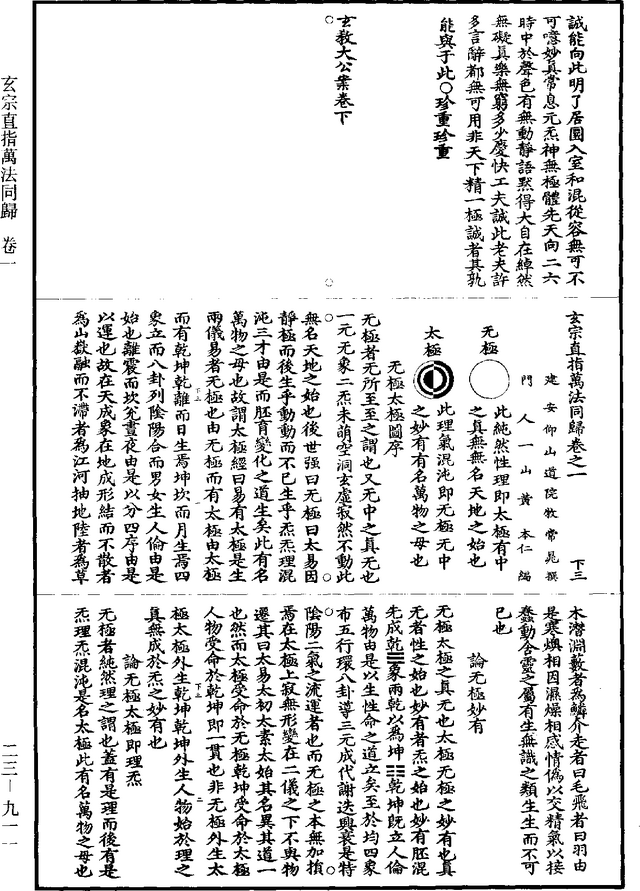 誠能向此明了居圜入室和混從容無可不
可噫妙真常息元炁神無極體先天向二六
時中於聲色有無動靜語默得大自在綽然
無礙真樂無窮多少慶快工夫誠此老夫許
多言辭都無可用非天下精一極誠者其孰
能與于此○珍重珍重
玄教大公案卷下
玄宗直指萬法同歸卷之一 下三
建安仰山道院牧常晁撰
門人一山黃本仁編
无極
此純然性理即太極有中
之真無無名天地之始也
太極
此理氣混沌即无極无中
之妙有有名萬物之母也
无極太極圖序
无極者无所至至之謂也又无中之真无也
一元无象二炁未萌空洞玄虛寂然不動此
無名天地之始也後世強曰无極曰太易因
靜極而後生乎動動而不已生乎炁炁理混
沌三才由是而胚育變化之道生矣此有名
萬物之母也故謂太極經曰易有太極是生
兩儀易者无極也由无極而有太極由太極
而有乾坤乾離而日生焉坤坎而月生焉四
象立而八卦列陰陽合而男女生人倫由是
始也離震而坎兌晝夜由是以分四序由是
以運也故在天成象在地成形結而不散者
爲山嶽融而不滯者爲江河抽地陸者爲草
木潜淵藪者爲鱗介走者曰毛飛者曰羽由
是寒燠相因濕燥相感情僞以交精氣以接
蠢動含靈之屬有生無識之類生生而不可
已也
論无極妙有
无極太極之真无也太極无極之妙有也真
无者性之始也妙有者炁之始也妙有胚混
先成乾☰象兩乾以爲坤☷乾坤既立人倫
萬物由是以生性命之道立矣至於均四象
布五行環八卦導三元成代謝迭興衰是特
陰陽二氣之流運者也而无極之本無加損
焉在太極上寂無形變在二儀之下不與物
遷其曰太易太初太素太始其名異其道一
也然而太極受命於无極乾坤受命於太極
人物受命於乾坤即一貫也非无極外生太
極太極外生乾坤乾坤外生人物始於理之
真無成於炁之妙有也
論无極太極即理炁
无極者純然理之謂也蓋有是理而後有是
炁理炁混沌是名太極此有名萬物之母也
玄宗直指萬法同歸 卷一
二三—九一一